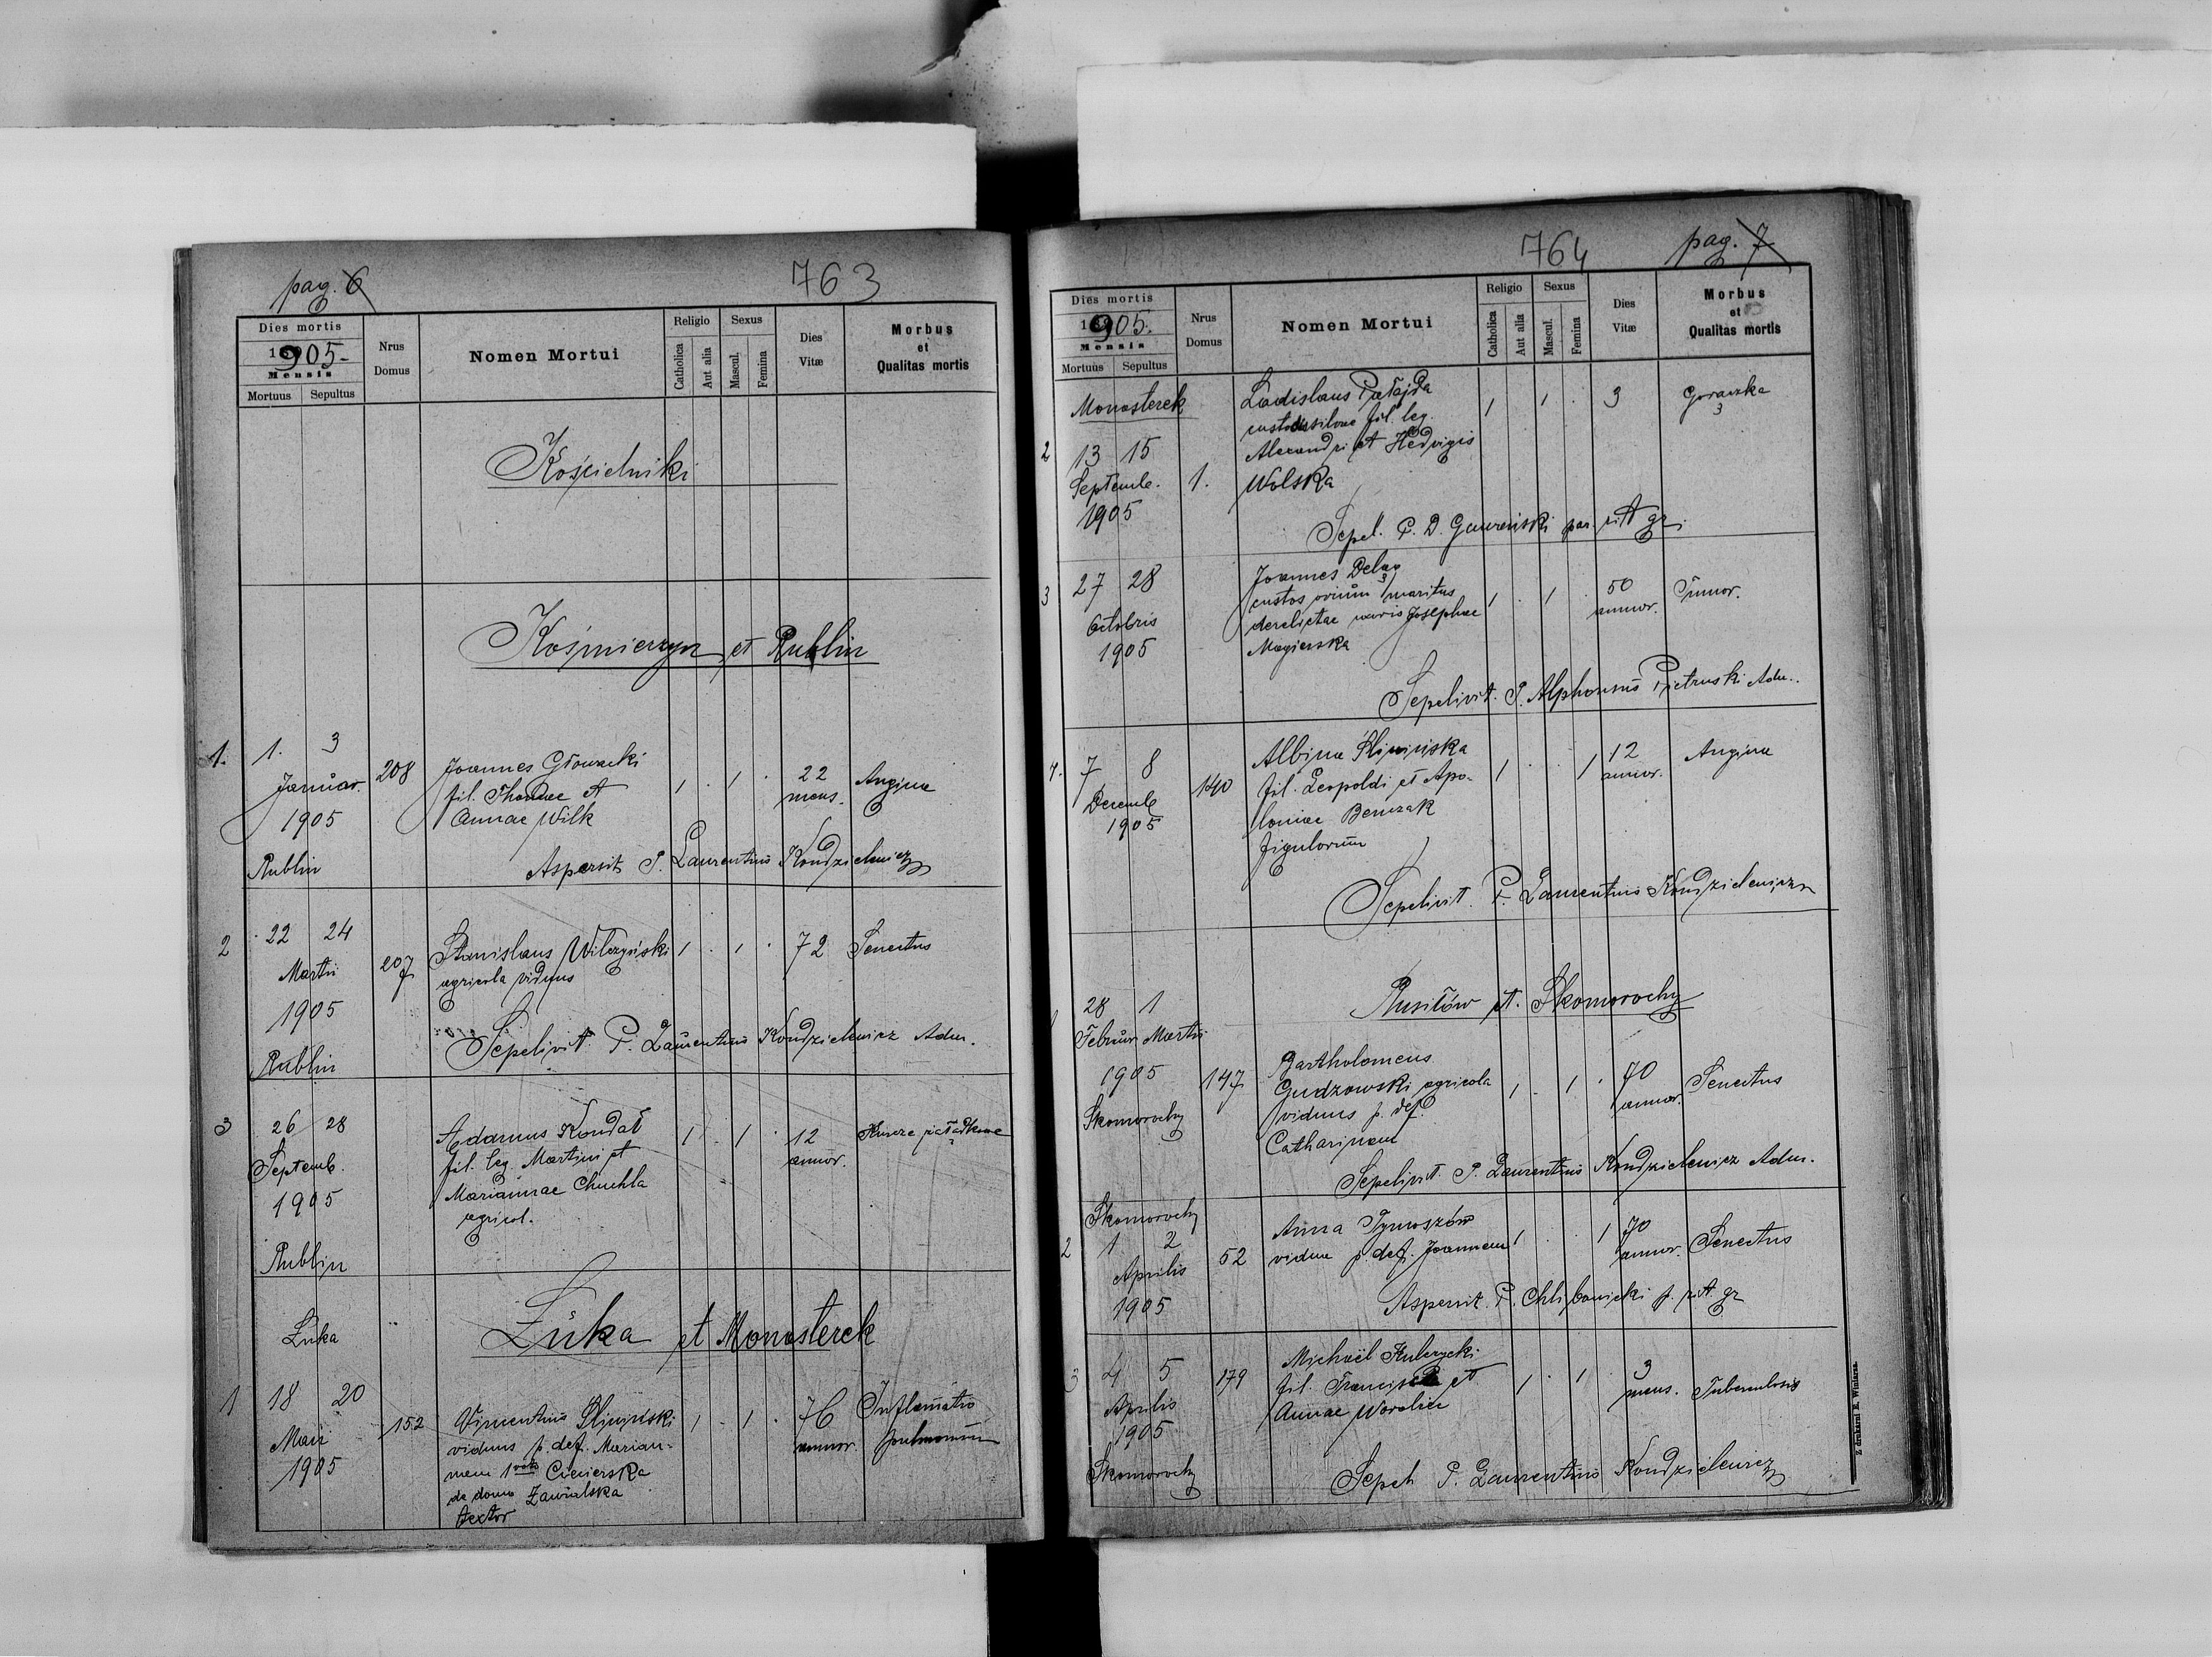 pag. 6
763
Dies mortis
1905.
Mensis
Mortuus Sepultus
Nrus Domus
Nomen Mortui
Religio
Catholica
Aut alia
Sexus
Mascul.
Femina
Dies Vitæ
Morbus
et
Qualitas mortis
Kościelniki
Kośmierzyn et Rublin
1. 1. 3
Januar.
1905
Rublin
208
Joannes Głowacki
fil. Thomae et
Annae Wilk
1 . 1 .
22
mens.
Angina
Aspersit P. Laurentius Kondzielewicz
2 22 24
Martii
1905
Rublin
207
Stanislaus Wilczyński
agricola viduus
1 . 1 .
72
Senectus
Sepelivit P. Laurentius Kondzielewicz Adm.
3 26 28
Septemb.
1905
Rublin
Adamus Kondał
fil. leg. Martini et
Mariannae Chuchla
agricol.
1 . 1 .
12
annor.
Łuka et Monasterek
Łuka
1 18 20
Maii
1905
152
Vincentius Śliwiński
viduus p. def. Marian-
nam
de domo Zawalska
textor
1 . 1 .
76
annor.
Inflamatio
pulmonum
764
pag. 7
Dies mortis
1905.
Mensis
Mortuus Sepultus
Nrus Domus
Nomen Mortui
Religio
Catholica
Aut alia
Sexus
Mascul.
Femina
Dies Vitæ
Morbus
et
Qualitas mortis
Monasterek
2 13 15
Septemb.
1905
1.
Ladislaus Patajda
custodis silvae fil. leg.
Alexandri et Hedvigis
Wolska
1 1 .
3
Gorączka
Sepel. P. D. par. rit. gr.
3 27 28
Octobris
1905
Joannes Deląg
custos ovium maritus
derelictae uxoris Josephae
Magierska
1 . 1 .
50
annor.
Tumor.
Sepelivit P. Alphonsus Pietruski Adm.
4. 7 8
Decemb
1905
140
Albina Śliwińska
fil. Leopoldi et Apo-
loniae Benczak
figulorum
1 . . 1
12
annor.
Angina
Sepelivit P. Laurentius Kondzielewicz
Rusiłów et Skomorochy
28 1
Februar. Martii
1905
Skomorochy
147
Bartholomeus
Gudzowski agricola
viduus p. def.
Catharinam
1 . 1 .
70
annor.
Senectus
Sepelivit P. Laurentius Kondzielewicz Adm.
Skomorochy
2 1 2
Aprilis
1905
52
Anna Tymoszów
vidua p. def. Joannem
1 . . 1
70
annor.
Senectus
Aspersit P. Chlibowicki p. rit. gr
3 4 5
Aprilis
1905
Skomorochy
179
Michaël Kulczycki
fil. Francisci et
Annae
1 . 1 .
3
mens.
Tuberculosis
Sepel. P. Laurentius Kondzielewicz
Z drukarni E. Winiarza.